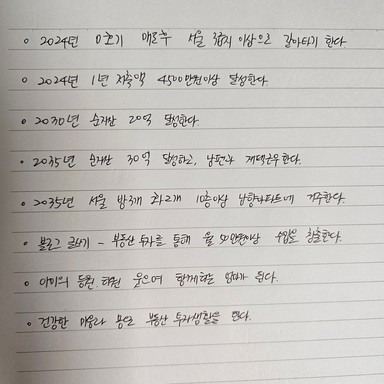 • 2024년 0호기 매도후 서울 3급지 이상으로 갈아타기 한다
• 2024년 1년 저축액 4500만원이상 달성한다.
• 2030년 순자산 20억 달성한다.
• 2035년 순자산 30억 달성하고, 남편과 재테크한다.
• 2035년 서울 방3개 화2개 10층이상 남향아파트에 거주한다.
• 블로그 글쓰기 - 부동산 투자를 통해 월 50만원이상 수입을 창출한다.
• 아이의 등원 하원 웃으며 함께하는 엄마가 된다.
• 건강한 마음과 몸으로 부동산 투자생활을 한다.